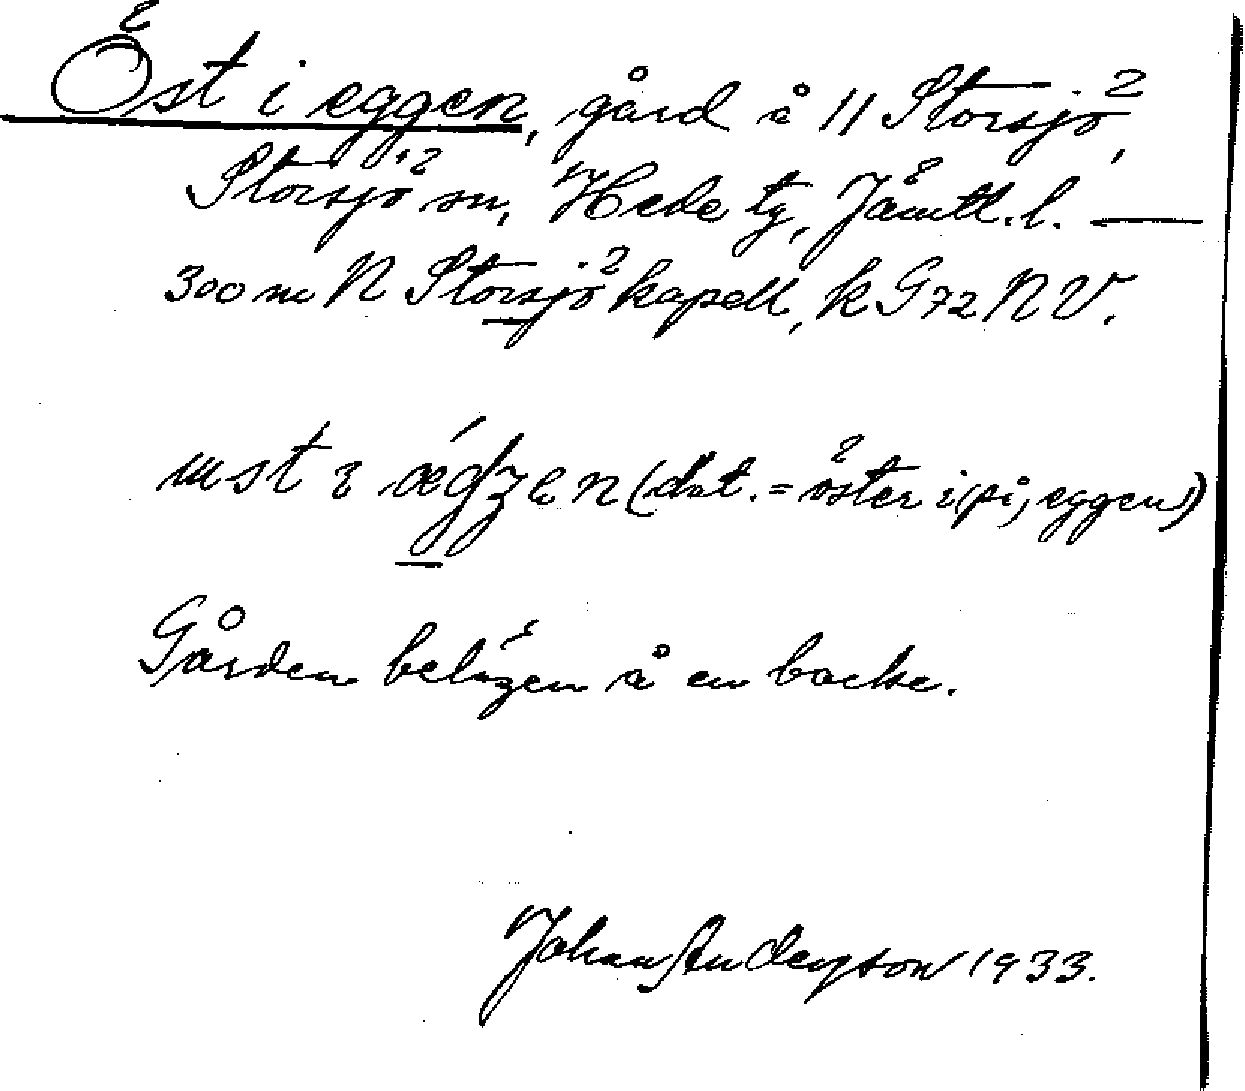 Öst i eggen, gård å 11 Storsjö,
Storsjö sn, Hede tg, Jämtl. l. —
300 m N Storsjö kapell, k G72 NV.
st æ (dat. = öster i (på) eggen)
Gården belägen å en backe.
Johan Anderson 1933.